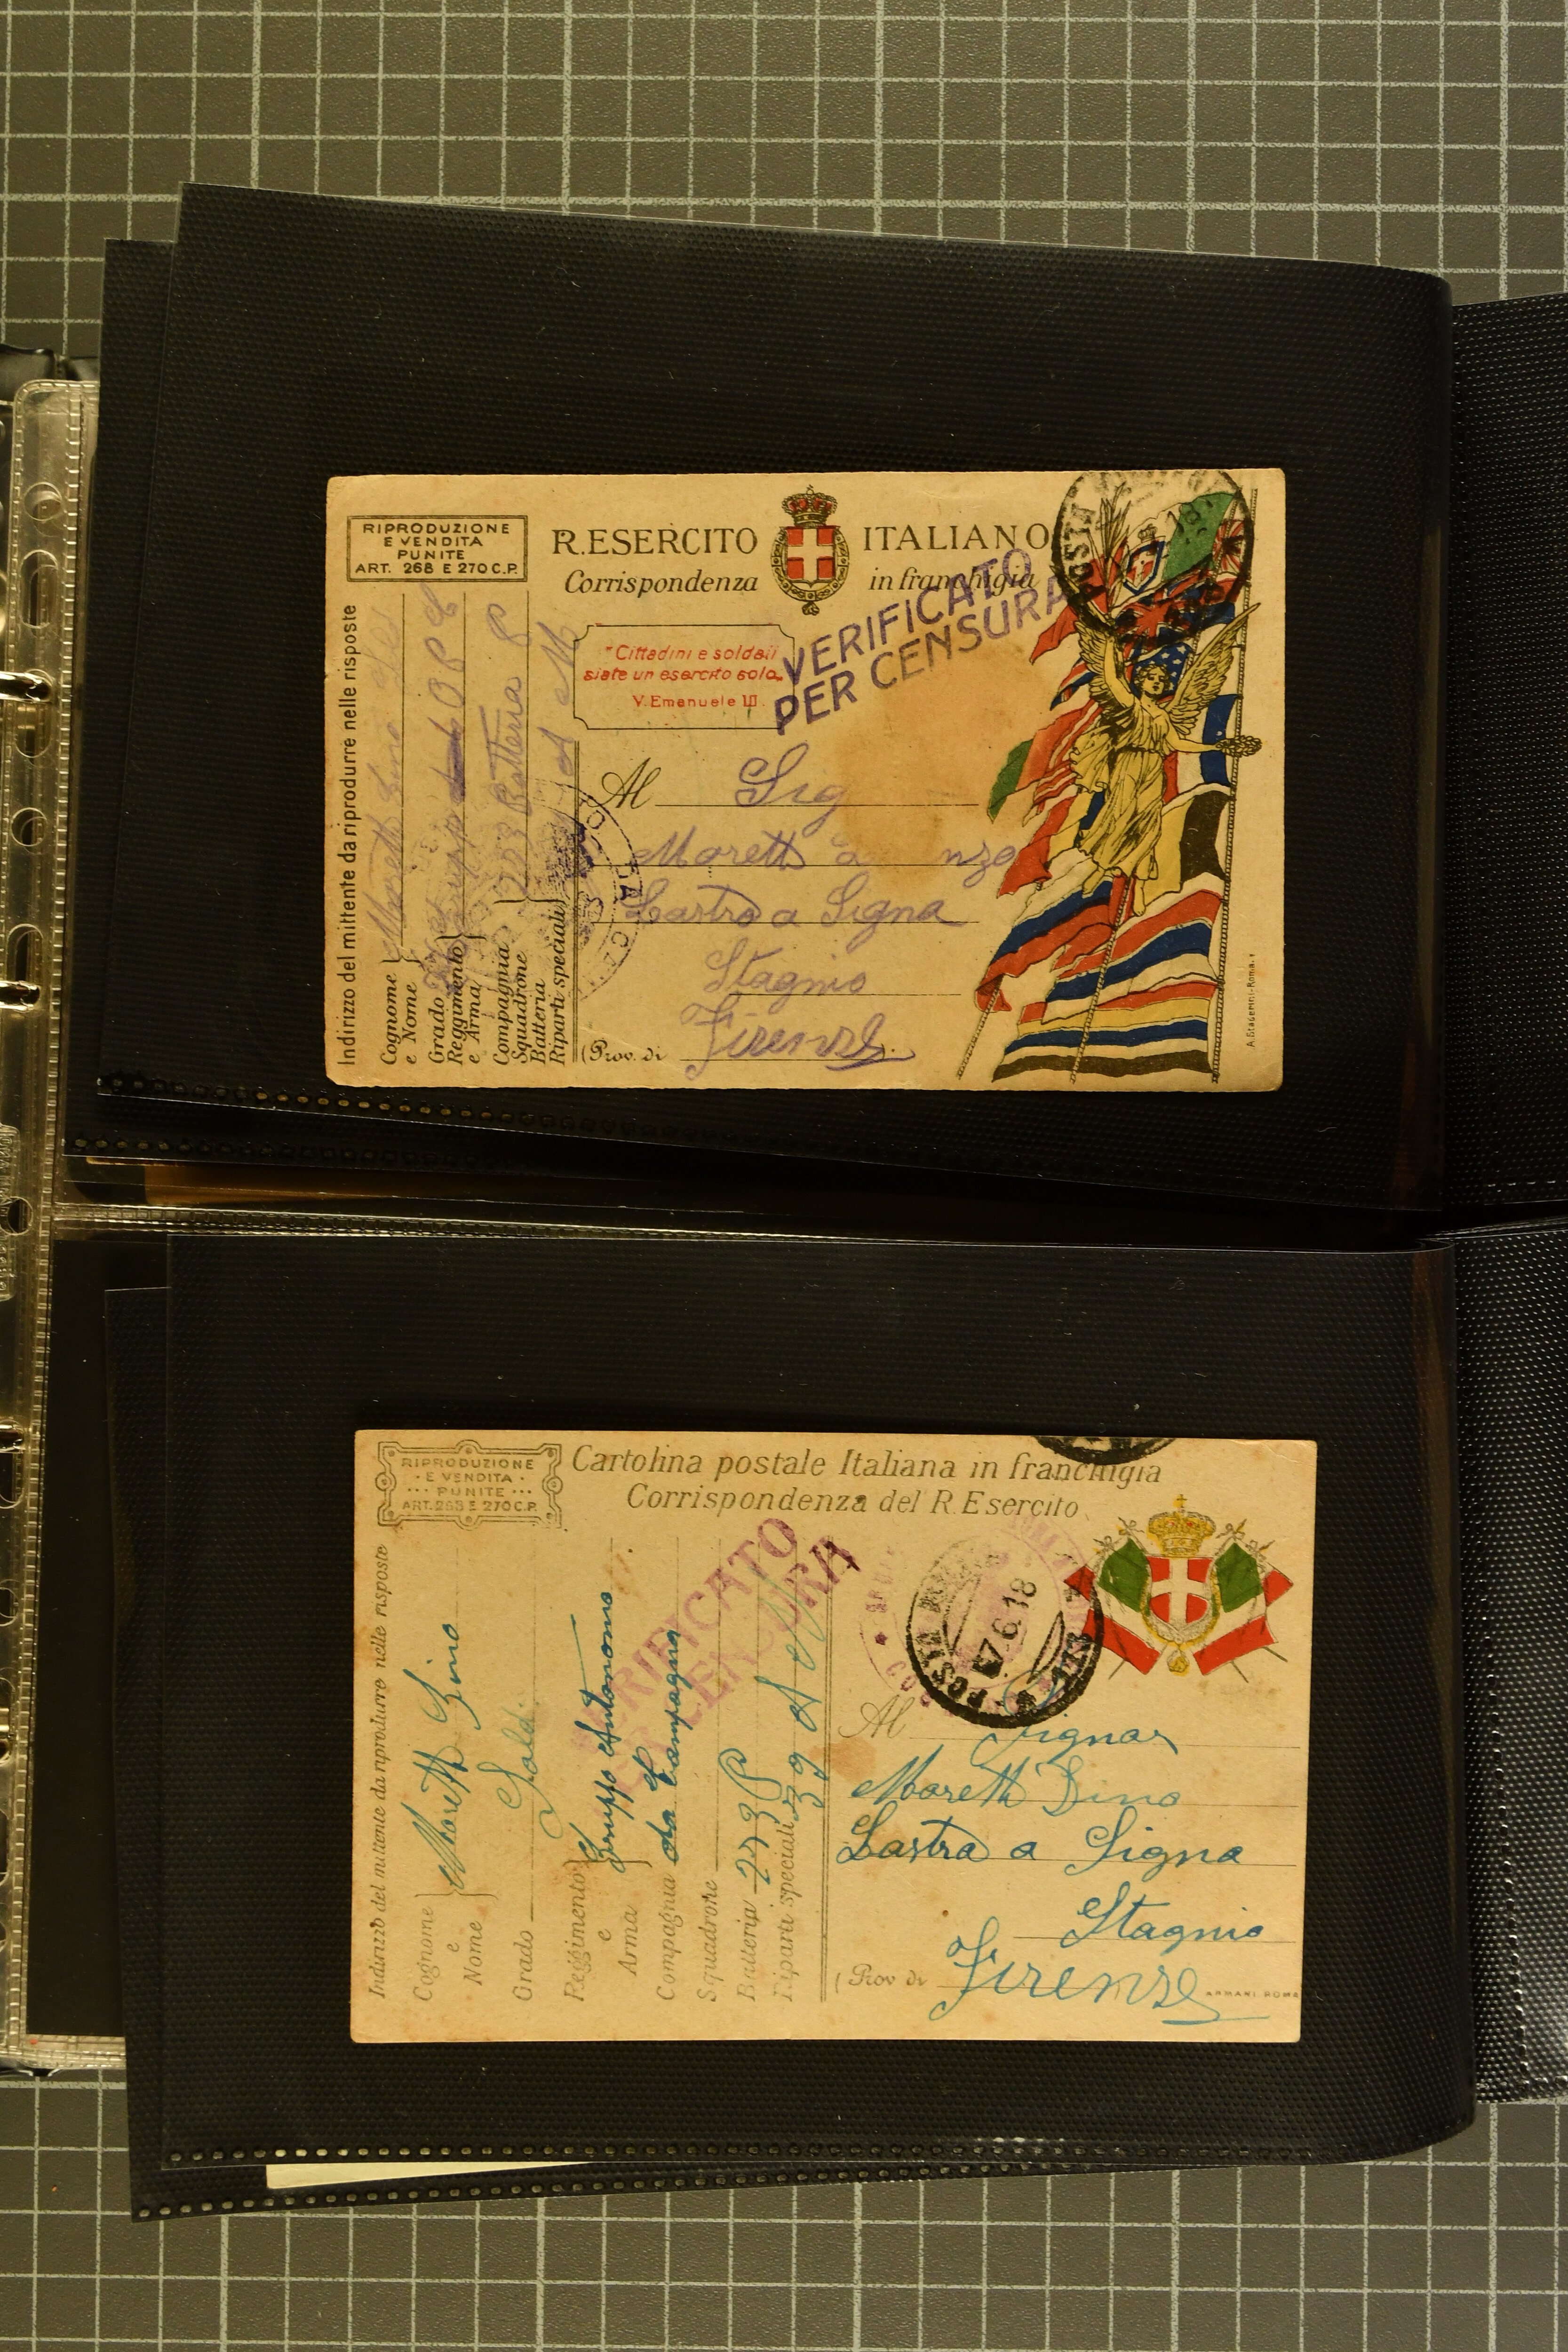 RIPRODUZIONE
E VENDITA
PUNITE
ART. 268 E 270 C.P.
R. ESERCITO ITALIANO
Corrispondenza in franchigia
VERIFICATO
PER CENSURA
"Cittadini e soldati
siate un esercito solo„
V. Emanuele III.
Indirizzo del mittente da riprodurre nelle risposte
Cognome
e Nome
Moretti
Grado
Reggimento
e Arma
Compagnia
Squadrone
Batteria
223 Batteria
Riparti speciali
Al Sig
Moretti
Lastra a Signa
Stagnio
(Prov. di Firenze).
POSTA
A. Staderini-Roma
RIPRODUZIONE
· E VENDITA ·
··· PUNITE ···
ART. 268 E 270 C.P.
Cartolina postale Italiana in franchigia
Corrispondenza del R. Esercito
VERIFICATO
PER CENSURA
Indirizzo del mittente da riprodurre nelle risposte
Cognome
e
Nome
Moretti Gino
Grado Sold
Reggimento
e
Arma
Gruppo Autonomo
Compagnia da Campagna
Squadrone
Batteria
Riparti speciali
POSTA
6.18
Al Signor
Moretti Dino
Lastra a Signa
Stagnio
(Prov di Firenze
ARMANI ROMA